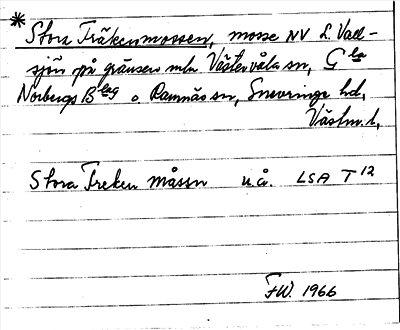 * Stora Träkenmossen, mosse NV L. Vall-
sjön på gränsen mln Västervåla sn, G:la
Norbergs B:lag o. Ramnäs sn, Snevringe hd,
Västm. l,
Stora Treken måssn u.å. LSA T 12
FW. 1966